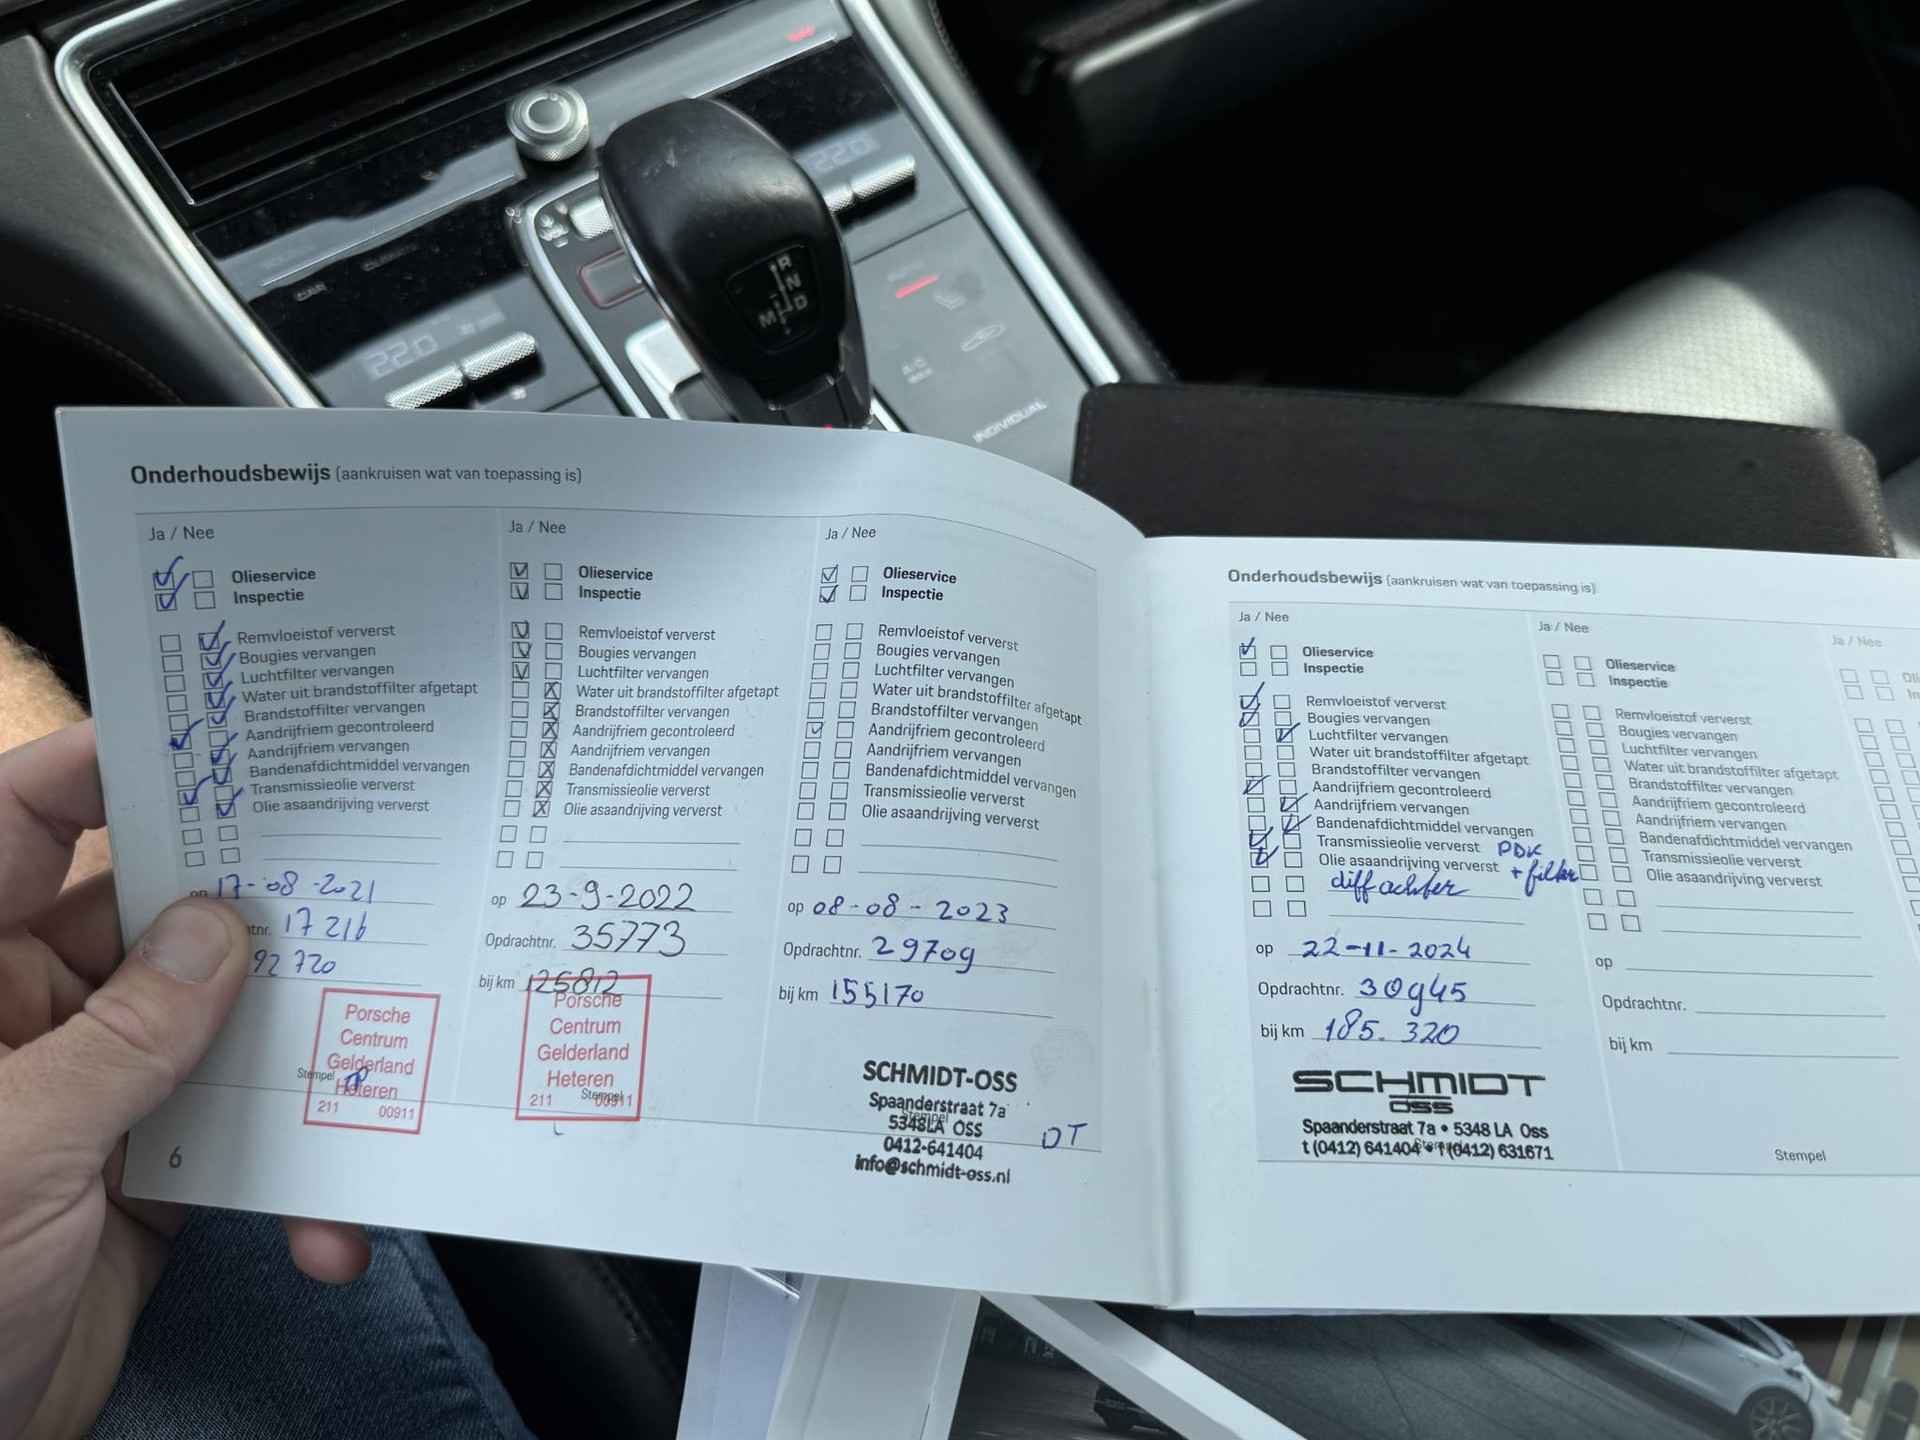 220
220
CAR
CLIMATE
R
N
D
M
A/C
MAX
INDIVIDUAL
Onderhoudsbewijs (aankruisen wat van toepassing is)
Ja / Nee
Olieservice
Inspectie
Remvloeistof ververst
Bougies vervangen
Luchtfilter vervangen
Water uit brandstoffilter afgetapt
Brandstoffilter vervangen
Aandrijfriem gecontroleerd
Aandrijfriem vervangen
Bandenafdichtmiddel vervangen
Transmissieolie ververst
Olie asaandrijving ververst
op 17-08-2021
tnr. 17216
92 720
Porsche
Centrum
Gelderland
Heteren
211 00911
Stempel
6
Ja / Nee
Olieservice
Inspectie
Remvloeistof ververst
Bougies vervangen
Luchtfilter vervangen
Water uit brandstoffilter afgetapt
Brandstoffilter vervangen
Aandrijfriem gecontroleerd
Aandrijfriem vervangen
Bandenafdichtmiddel vervangen
Transmissieolie ververst
Olie asaandrijving ververst
op 23-9-2022
Opdrachtnr. 35773
bij km 125812
Porsche
Centrum
Gelderland
Heteren
211 00911
Stempel
Ja / Nee
Olieservice
Inspectie
Remvloeistof ververst
Bougies vervangen
Luchtfilter vervangen
Water uit brandstoffilter afgetapt
Brandstoffilter vervangen
Aandrijfriem gecontroleerd
Aandrijfriem vervangen
Bandenafdichtmiddel vervangen
Transmissieolie ververst
Olie asaandrijving ververst
op 08-08-2023
Opdrachtnr. 29709
bij km 155170
SCHMIDT-OSS
Spaanderstraat 7a
Stempel
5348LA OSS
0412-641404
info@schmidt-oss.nl
DT
Onderhoudsbewijs (aankruisen wat van toepassing is)
Ja / Nee
Olieservice
Inspectie
Remvloeistof ververst
Bougies vervangen
Luchtfilter vervangen
Water uit brandstoffilter afgetapt
Brandstoffilter vervangen
Aandrijfriem gecontroleerd
Aandrijfriem vervangen
Bandenafdichtmiddel vervangen
Transmissieolie ververst PDK
Olie asaandrijving ververst + filter
diff achter
op 22-11-2024
Opdrachtnr. 30945
bij km 185.320
SCHMIDT
OSS
Spaanderstraat 7a • 5348 LA Oss
t (0412) 641404 • f (0412) 631671
Stempel
Ja / Nee
Olieservice
Inspectie
Remvloeistof ververst
Bougies vervangen
Luchtfilter vervangen
Water uit brandstoffilter afgetapt
Brandstoffilter vervangen
Aandrijfriem gecontroleerd
Aandrijfriem vervangen
Bandenafdichtmiddel vervangen
Transmissieolie ververst
Olie asaandrijving ververst
op
Opdrachtnr.
bij km
Stempel
Ja / Nee